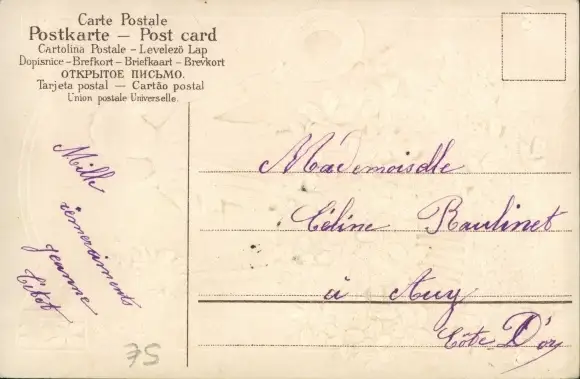 Carte Postale
Postkarte — Post card
Cartolina Postale – Levelező Lap
Dopisnice – Brefkort – Briefkaart – Brevkort
ОТКРЫТОЕ ПИСЬМО.
Tarjeta postal — Cartão postal
Union postale Universelle.
Mille
remerciments
Jeanne
Mademoiselle
Céline Raulinet
à
Côte D'or
75